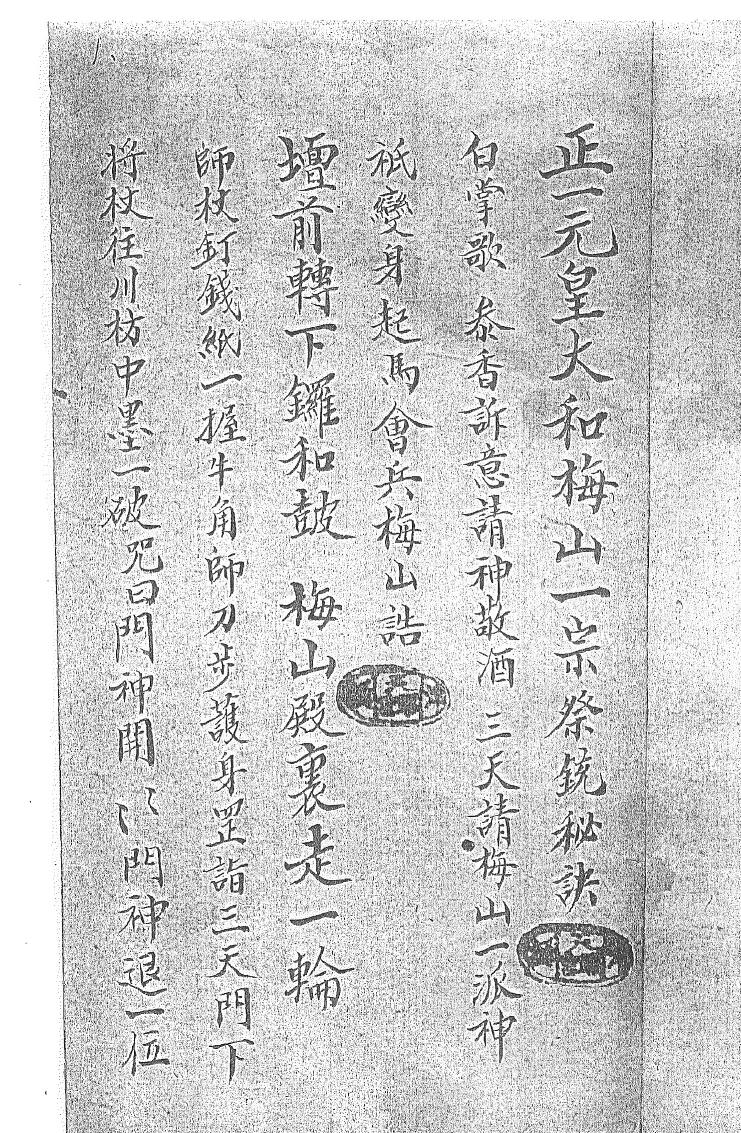 正一元皇大和梅山一宗祭銃秘訣
白掌歌 叅香訴意請神敬酒 三天請梅山一派神
祇變身起馬會兵梅山誥
壇前轉下鑼和鼓 梅山殿裏走一輪
師杖釘錢紙一握牛角師刀步護身罡詣三天門下
将杖往川枋中墨一破咒曰門神開〻〻門神退一伍